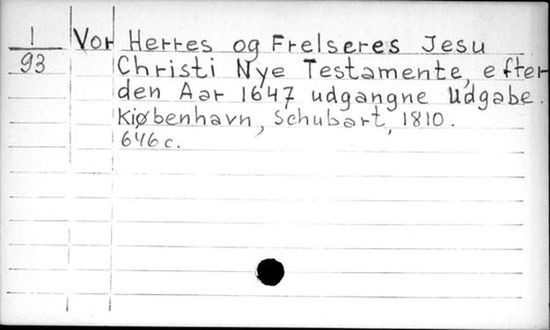 1 Vor Herres og Frelseres Jesu
93 Christi Nye Testamente, efter
den Aar 1647 udgangne Udgabe.
Kiøbenhavn, Schubart, 1810.
646 c.